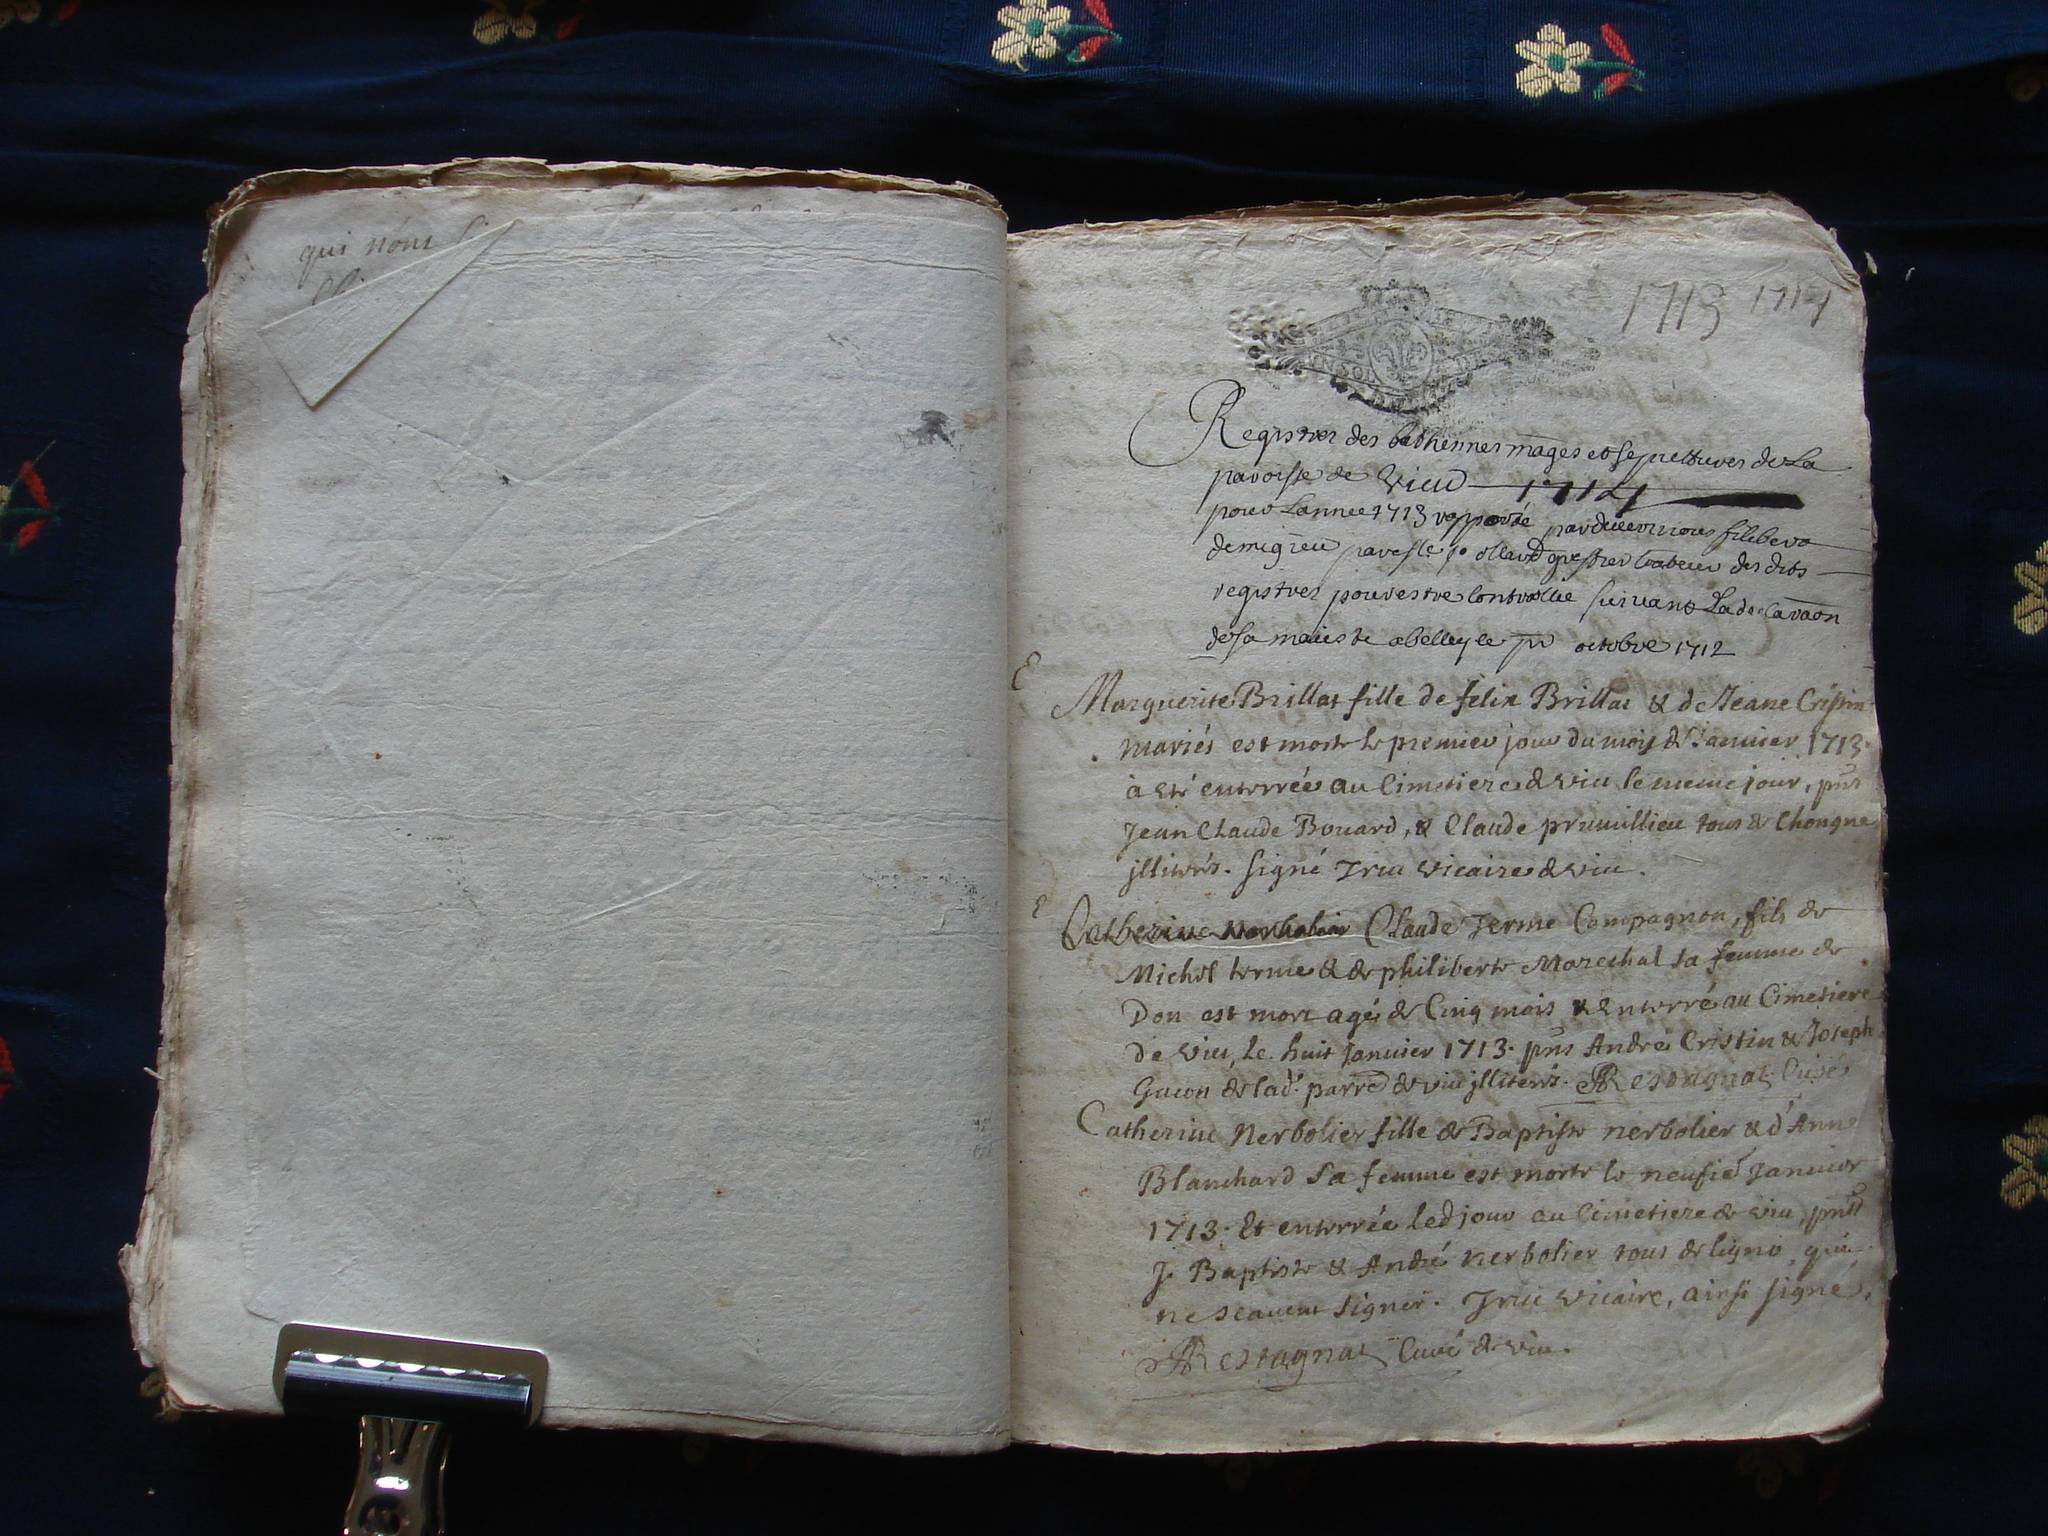 qui nous
1713 1714
Registres des bathennes mages et sepultures de La
paroisse de Vieu 1714
pour Lannee 1713 rapporté pardevant nous filibert
demigieu par esle greffier des dits
registres pour estre controllié suivant La declaraon
de sa maieste a belley le pr octobre 1712
E
Marguerite Brillat fille de felix Brillat & de Jeane Cristin
mariés est morte le premier jour du mois de Janvier 1713.
à eté enterrée au Cimetiere de vieu le meme jour, pnts
Jean Claude Bouard, & Claude prumillieu tous de Chongne
jlliterés. signé vicaire de vieu.
E
Catherine Nerbolier Claude Terme Compagnon, fils de
Michel terme & de philiberte Marechal sa femme de
Don est mort agé de Cinq mois & Enterré au Cimetiere
de Vieu, le huit Janvier 1713. pnts André Cristin & Joseph
Gucon de lad. parre de vieu jlliterés. Restagnat Curé
Catherine Nerbolier fille de Baptiste nerbolier & d'Anne
Blanchard sa femme est morte le neufie Janvier
1713. Et enterrée led jour au Cimetiere de vieu, pnts
J. Baptiste & André nerbolier tous de ligno, qui
ne scavent signer. vicaire, ainsi signé.
Restagnat Curé de vieu.